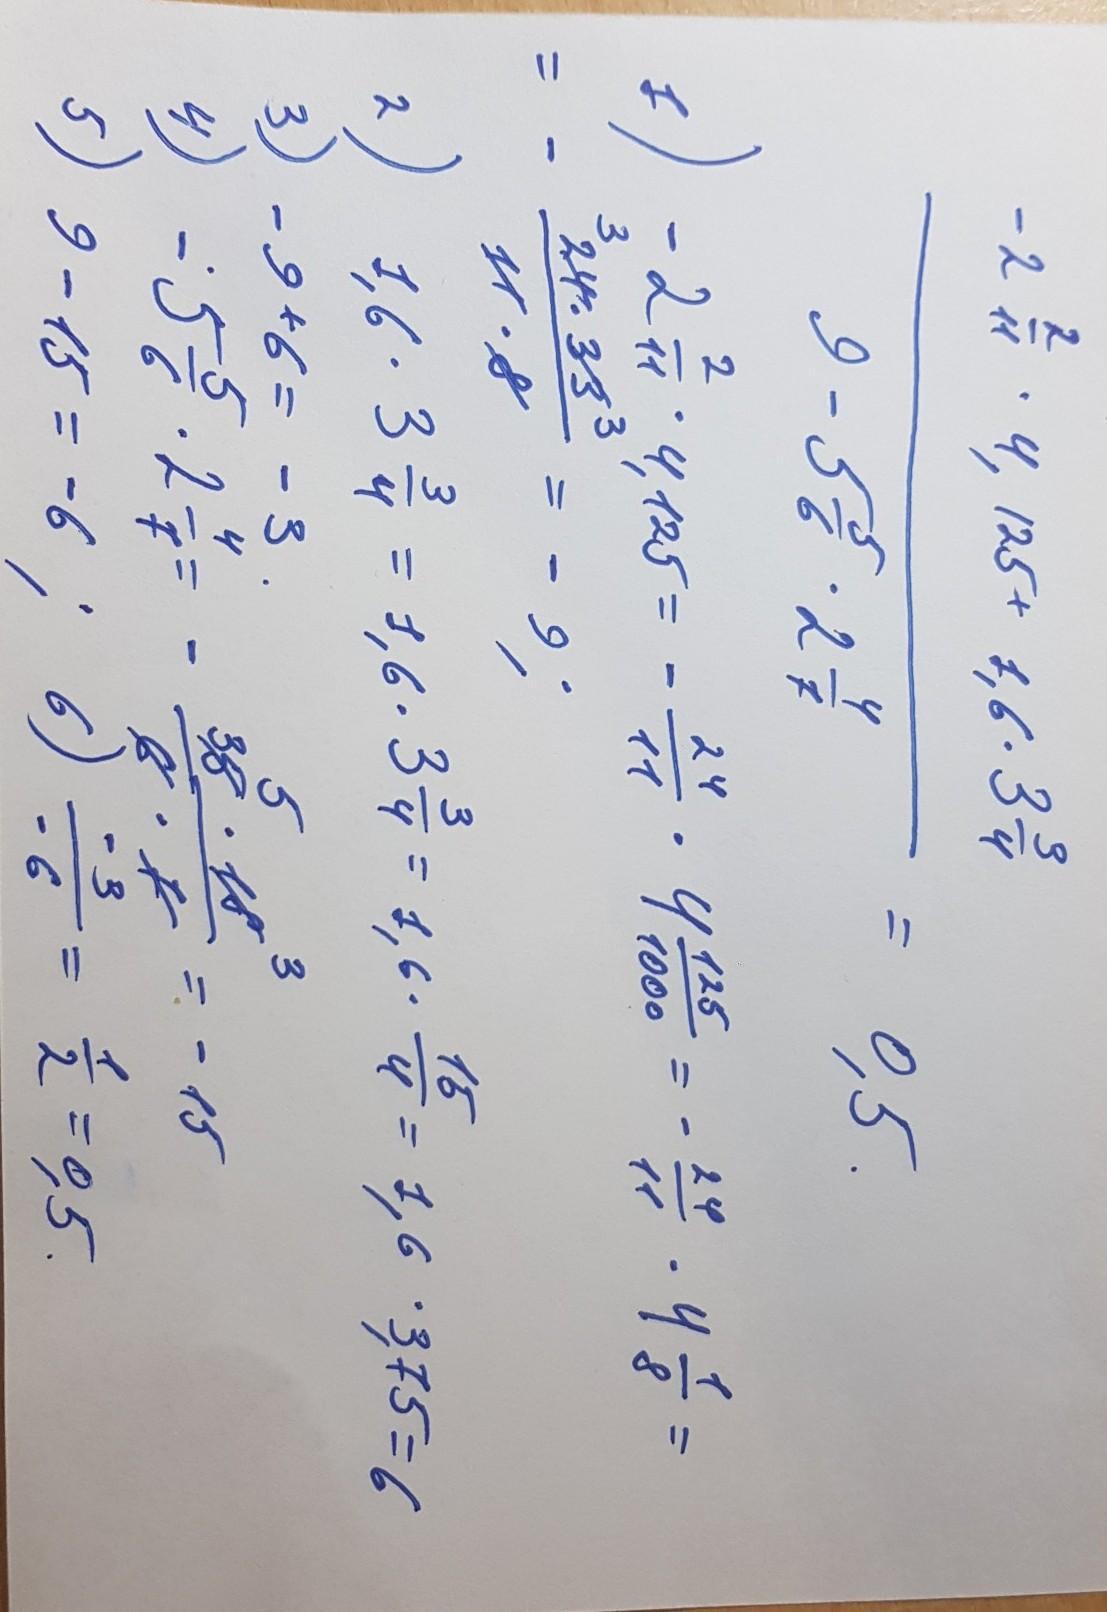 -2 2/11 · 4,125 + 1,6 · 3 3/4
9 - 5 5/6 · 2 4/7
= 0,5.
1) -2 2/11 · 4,125 = - 24/11 · 4 125/1000 = - 24/11 · 4 1/8 =
= - 3 24 · 33 3 / 11 · 8 = - 9;
2) 1,6 · 3 3/4 = 1,6 · 3 3/4 = 1,6 · 15/4 = 1,6 · 3,75 = 6
3) -9 + 6 = -3.
4) -5 5/6 · 2 4/7 = - 35 5 · 18 3 / 6 · 7 = - 15
5) 9 - 15 = -6; 6) -3/-6 = 1/2 = 0,5.